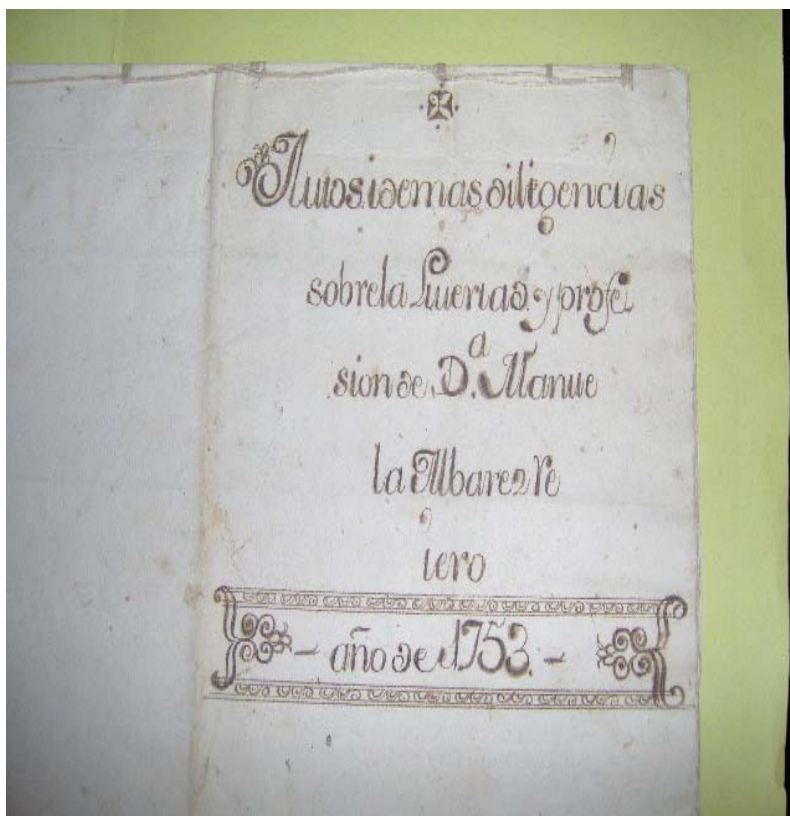 Autos. i demas diligencias
sobre la Livertad. y profe
sion de, D.ª Manue
la Albarez Re
iero
- año de 1753. -